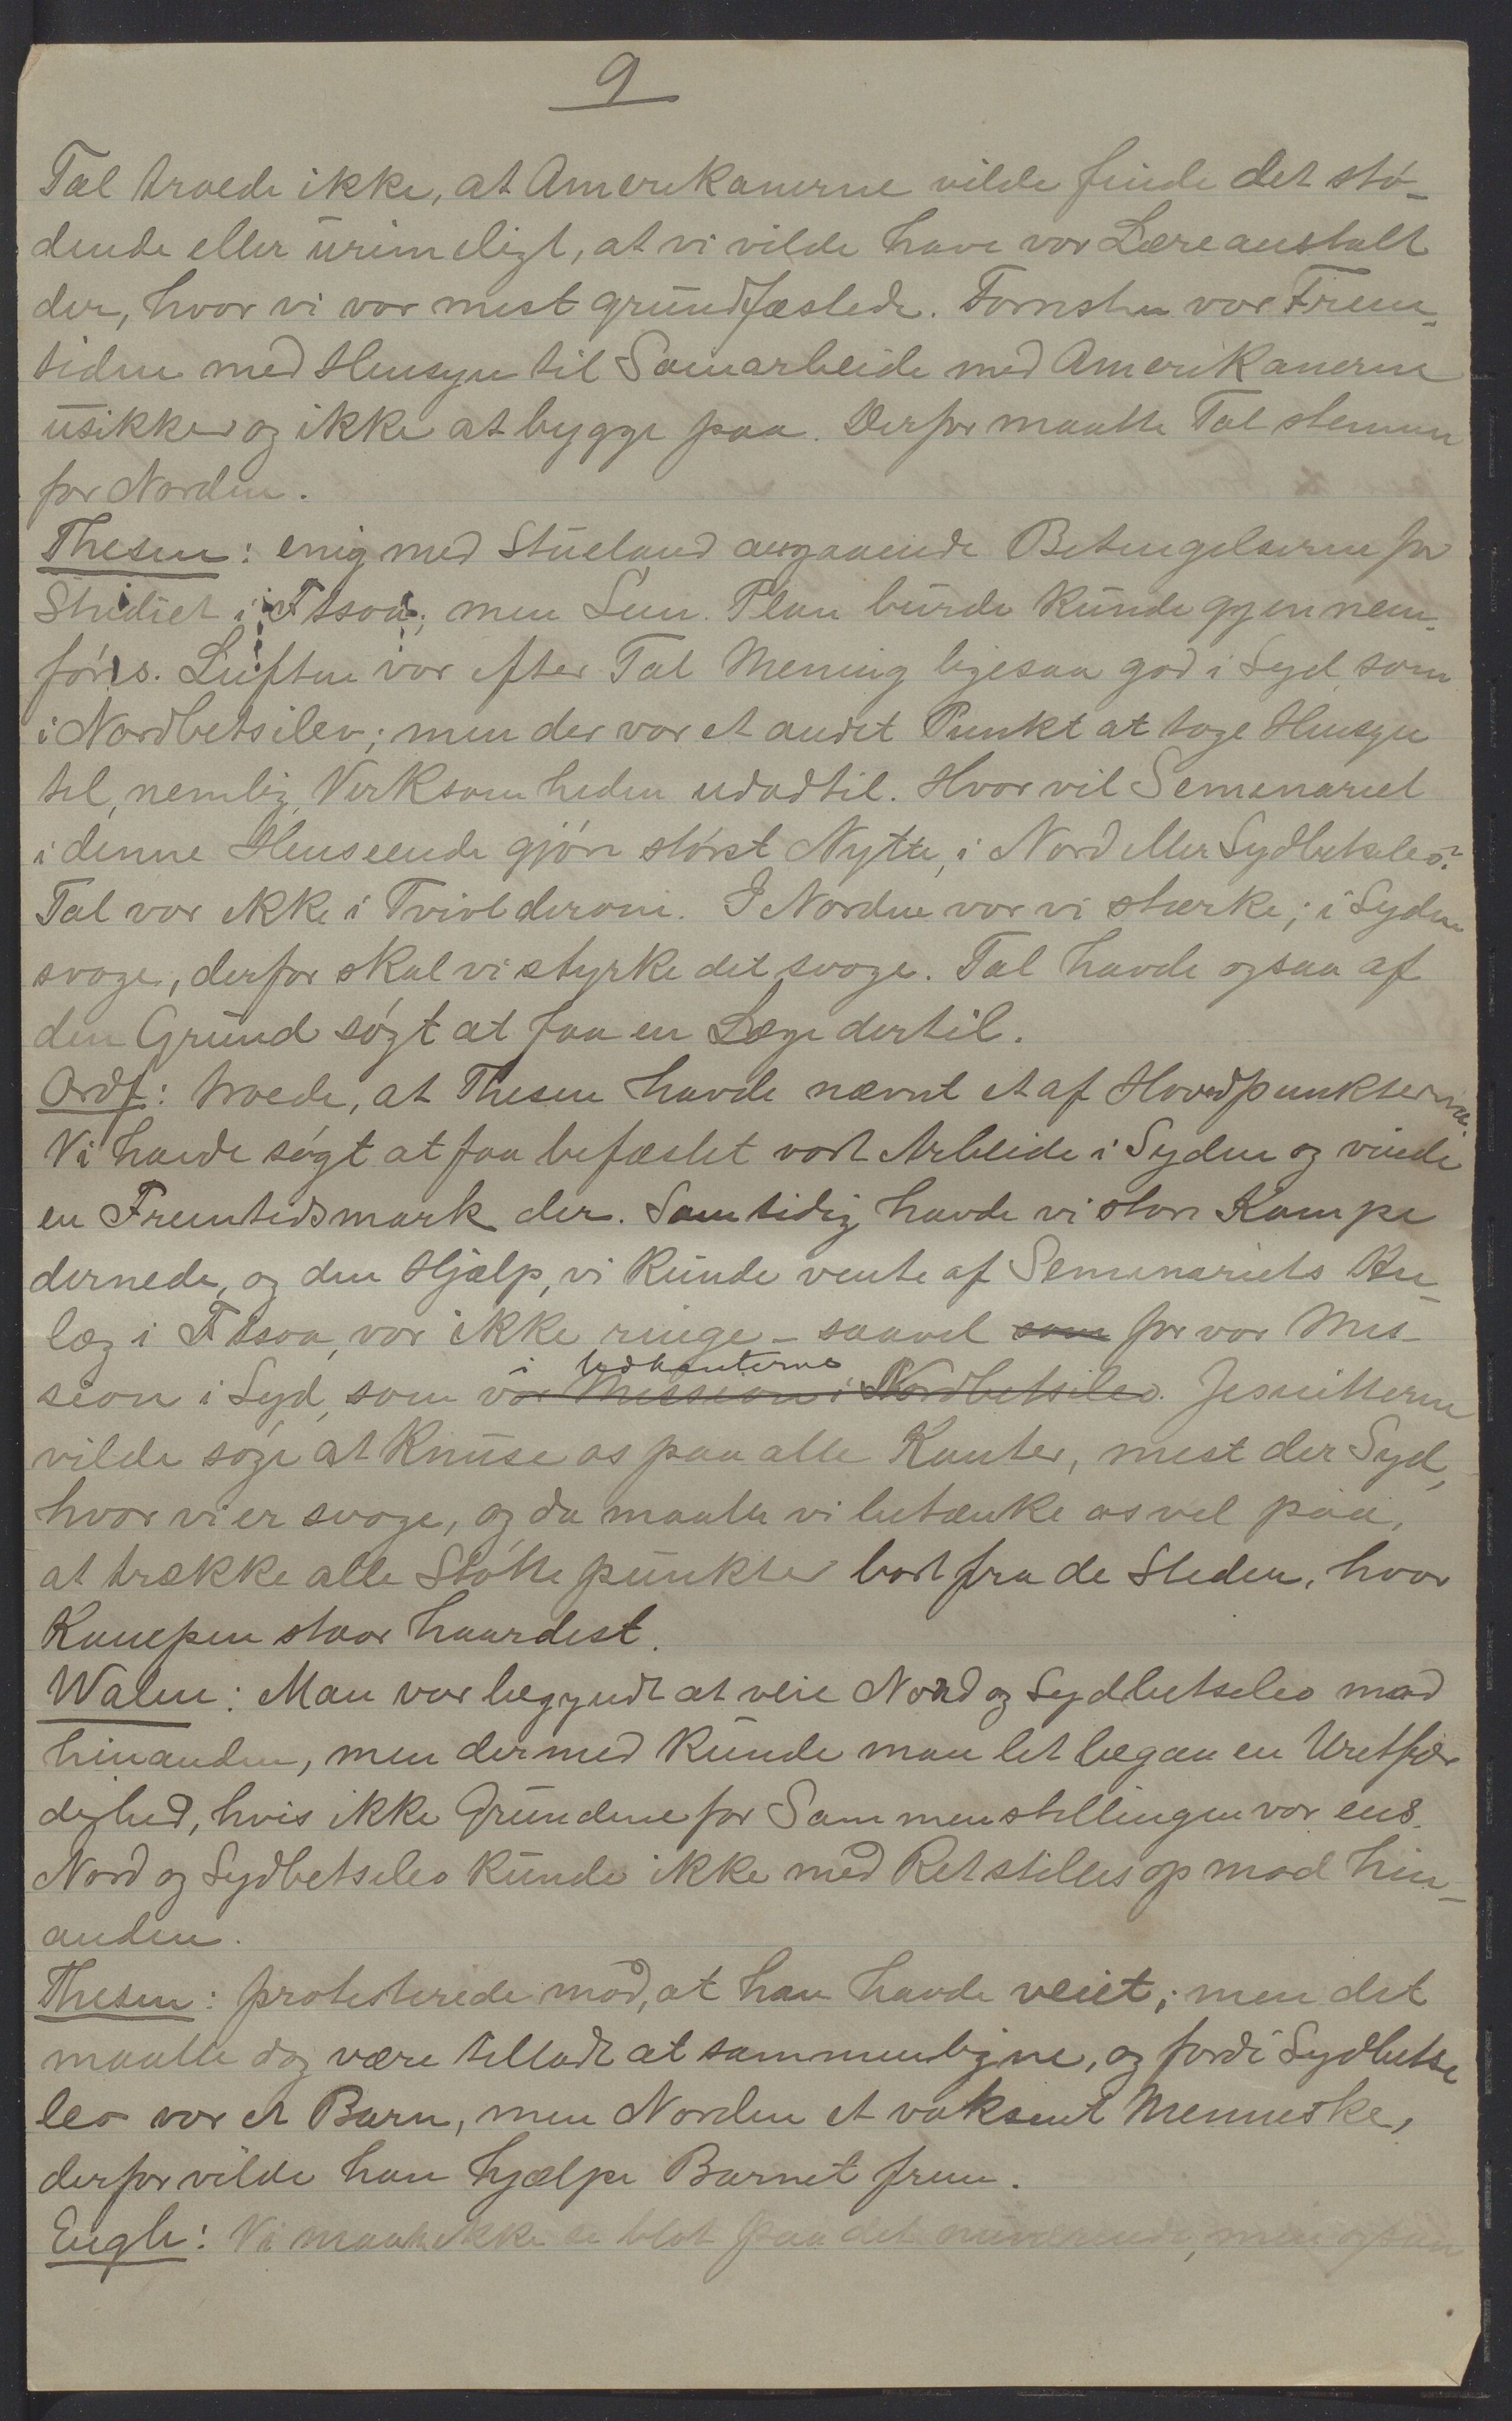 9
Tal troede ikke, at Amerikanerne vilde finde det stø-
dende eller urimeligt, at vi vilde have vor Læreanstalt
der, hvor vi var mest grundfæstede. Fornsten var Frem-
tiden med Hensyn til Samarbeide med Amerikanerne
usikker og ikke at bygge paa. Derfor maatte Tal stemme
for Norden.
Thesen: enig med Stueland angaaende Betingelserne for
Studiet i Ftsoa; men Sem. Plan burde kunde gjennem-
føres. Luften var efter Tal Mening ligesaa god i Syd som
i Nordbetsileo; men der var et andet Punkt at tage Hensyn
til, nemlig Virksomheden udadtil. Hvor vil Seminariet
i denne Henseende gjøre størst Nytte, i Nord eller Sydbetsileo?
Tal var ikke i Tvivl derom. I Norden var vi stærke; i Syden
svage, derfor skal vi styrke det svage. Tal havde ogsaa af
den Grund søgt at faa en Læge dertil.
Ordf: troede, at Thesen havde nævnt et af Hovedpunkterne.
Vi havde søgt at faa befæstet vort Arbeide i Syden og vinde
en Fremtidsmark der. Samtidig havde vi store Kampe
dernede, og den Hjælp, vi kunde vente af Seminariets An-
læg i Ftsoa, var ikke ringe - saavel som for vor Mis-
sion i Syd, som vor Mission i Nordbetsileo. Jesuitterne
i Udkanterne
vilde søge at knuse os paa alle Kanter, mest der Syd,
hvor vi er svage, og da maatte vi betænke os vel paa,
at trække alle Støttepunkter bort fra de Steder, hvor
Kampen staar haardest.
Walen: Man var begyndt at veie Nord og Sydbetsileo mod
hinanden, men dermed kunde man let begaa en Uretfær
dighed, hvis ikke Grundene for Sammenstillingen var ens.
Nord og Sydbetsileo kunde ikke med Ret stilles op mod hin-
anden.
Thesen: protesterede mod, at han havde veiet; men det
maatte dog være tilladt at sammenligne, og fordi Sydbetsi
leo var et Barn, men Norden et voksent Menneske,
derfor vilde han hjælpe Barnet frem.
Engh: Vi maatte ikke se blot paa det nuværende, men ogsaa